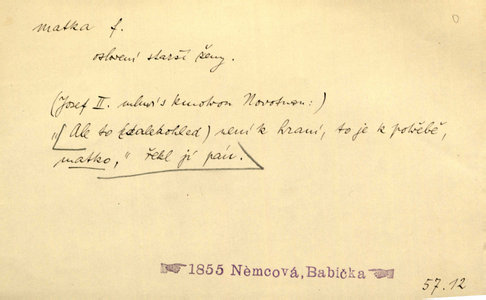 0
matka f.
oslovení starší ženy.
(Josef II. mluví s kmotrou Novotnou:)
„[Ale to (dalekohled) není k hraní, to je k potřebě,
matko," řekl jí pán.
1855 Němcová, Babička
57.12